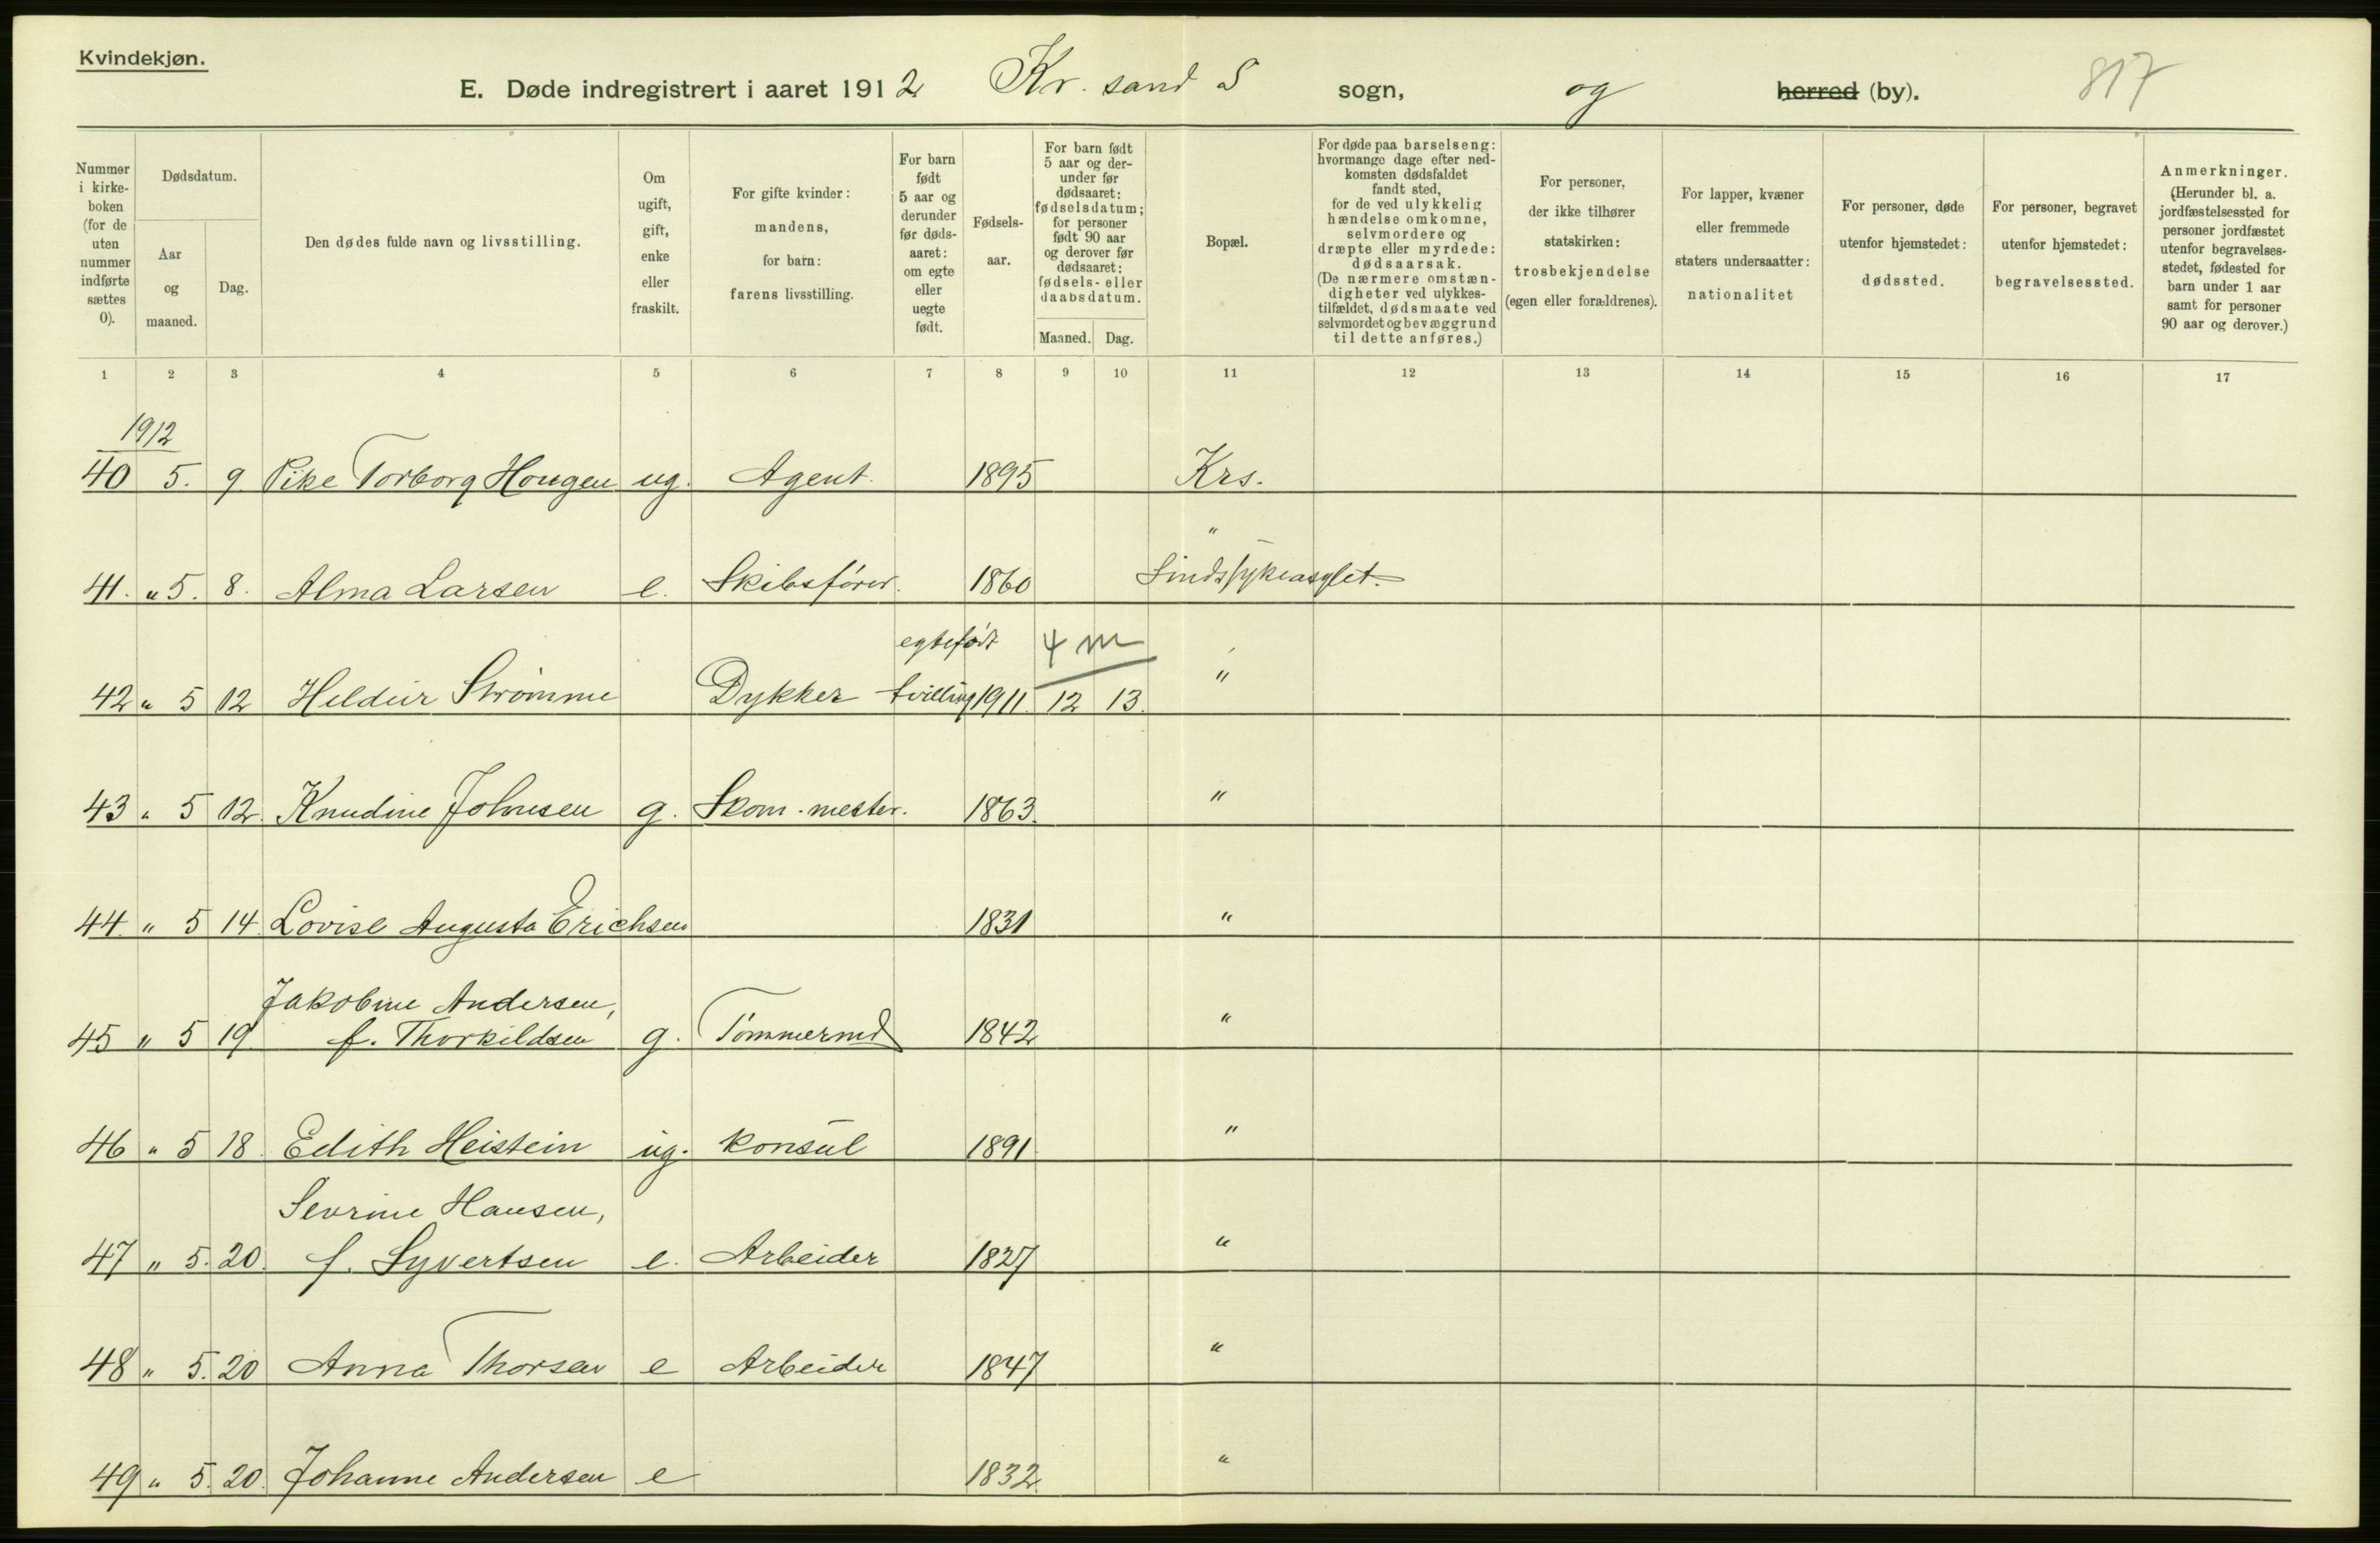 Kvindekjøn.
E. Døde indregistrert i aaret 1912 Kr. sand S sogn, og herred (by). 817
Nummer i kirkeboken (for de uten nummer indførte sættes 0).
Dødsdatum.
Aar og maaned.
Dag.
Den dødes fulde navn og livsstilling.
Om ugift, gift, enke eller fraskilt.
For gifte kvinder: mandens, for barn: farens livsstilling.
For barn født 5 aar og derunder før dødsaaret: om egte eller uegte født.
Fødselsaar.
For barn født 5 aar og derunder før dødsaaret: fødselsdatum; for personer født 90 aar og derover før dødsaaret: fødsels- eller daabsdatum.
Maaned. Dag.
Bopæl.
For døde paa barselseng: hvormange dage efter nedkomsten dødsfaldet fandt sted, for de ved ulykkelig hændelse omkomne, selvmordere og dræpte eller myrdede: dødsaarsak. (De nærmere omstændigheter ved ulykkestilfældet, dødsmaate ved selvmordet og bevæggrund til dette anføres.)
For personer, der ikke tilhører statskirken: trosbekjendelse (egen eller forældrenes).
For lapper, kvæner eller fremmede staters undersaatter: nationalitet
For personer, døde utenfor hjemstedet: dødssted.
For personer, begravet utenfor hjemstedet: begravelsessted.
Anmerkninger. (Herunder bl. a. jordfæstelsessted for personer jordfæstet utenfor begravelsesstedet, fødested for barn under 1 aar samt for personer 90 aar og derover.)
1 2 3 4 5 6 7 8 9 10 11 12 13 14 15 16 17
1912
40 5. 9 Pike Torborg Hougen ug. Agent. 1895 Krs.
"
41. " 5. 8. Alma Larsen e. Skibsfører. 1860 Sindssykeasylet.
egtefødt 4 m
42 " 5 12 Heldur Strømme Dykker tvilling 1911. 12 13. "
43 " 5 12. Knudine Johnsen g. Skom. mester. 1863. "
44. " 5 14. Lovise Augusta Erichsen 1831 "
Jakobine Andersen,
45 " 5 19 f. Thorkildsen g. Tømmermd 1842 "
46 " 5 18. Edith Heistein ug. konsul 1891 "
Sevrine Hansen,
47 " 5. 20. f. Syvertsen e. Arbeider 1827 "
48 " 5. 20 Anna Thorsen e Arbeider 1847 "
49 " 5. 20. Johanne Andersen e 1832. "